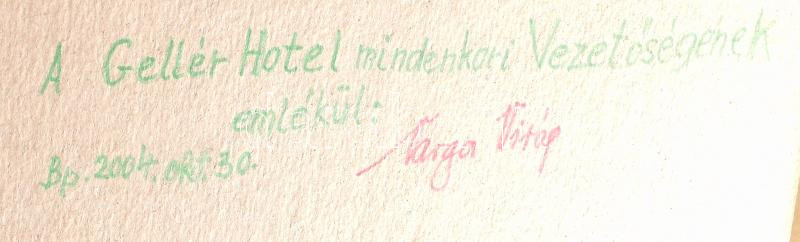 A Gellér Hotel mindenkori Vezetőségének
emlékül:
Bp. 2004. okt. 30.
Varga Virág